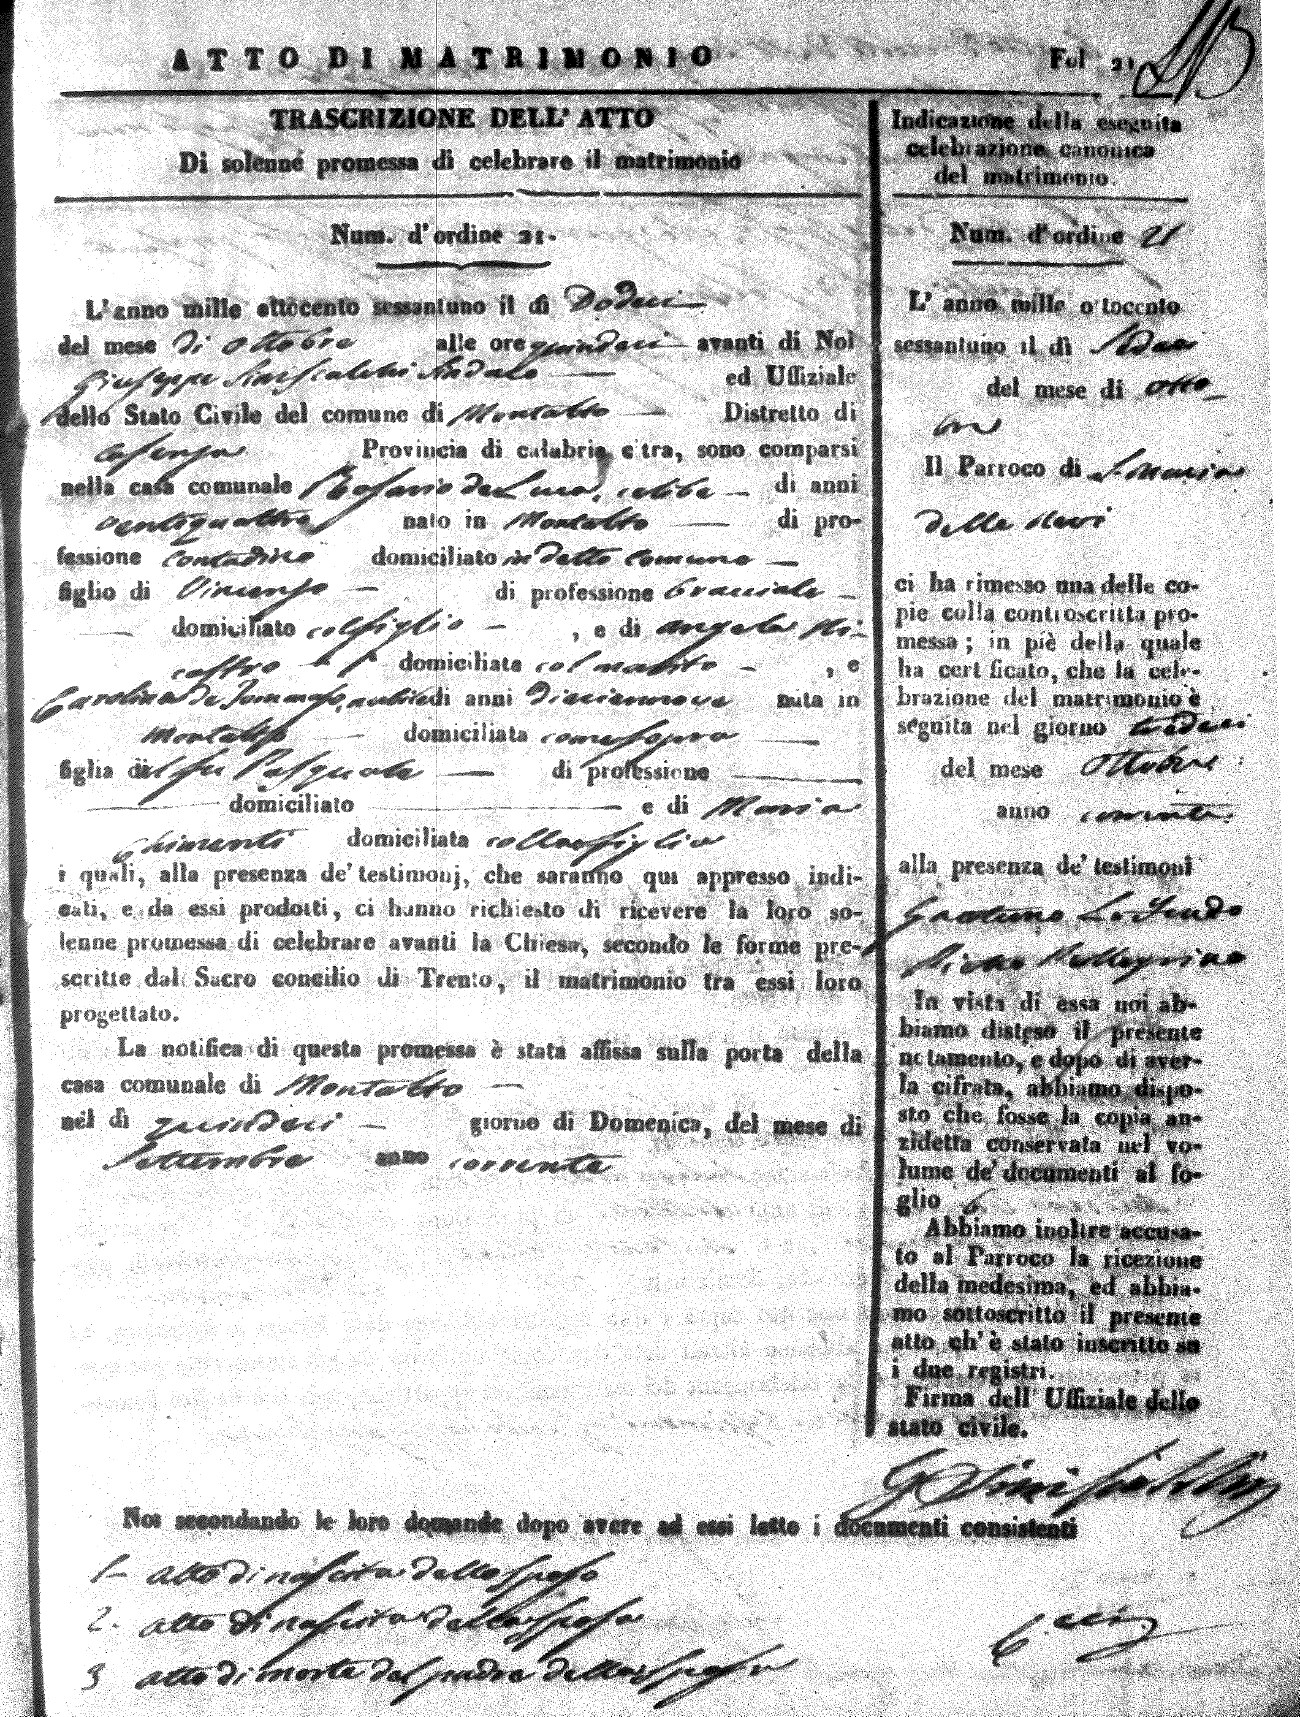 ATTO DI MATRIMONIO
Fol 21
TRASCRIZIONE DELL' ATTO
Di solenne promessa di celebrare il matrimonio
Num. d'ordine 21.
L'anno mille ottocento sessantuno il dì Dodeci
del mese di Ottobre alle ore quindeci avanti di Noi
Giuseppe Siniscalchi Sindaco ed Uffiziale
dello Stato Civile del comune di Montalto Distretto di
Cosenza Provincia di calabria citra, sono comparsi
nella casa comunale Rosario de Luca, celibe di anni
ventiquattro nato in Montalto di pro-
fessione contadino domiciliato in detto comune
figlio di Vincenzo di professione bracciale
domiciliato col figlio , e di Angela
domiciliata col marito , e
Carolina de Tommaso, nubile di anni diecinnove nata in
Montalto domiciliata come sopra
figlia del fu Pasquale di professione
domiciliato e di Maria
Chimenti domiciliata colla figlia
i quali, alla presenza de' testimonj, che saranno qui appresso indi-
cati, e da essi prodotti, ci hanno richiesto di ricevere la loro so-
lenne promessa di celebrare avanti la Chiesa, secondo le forme pre-
scritte dal Sacro concilio di Trento, il matrimonio tra essi loro
progettato.
La notifica di questa promessa è stata affissa sulla porta della
casa comunale di Montalto
nel dì quindeci giorno di Domenica, del mese di
Settembre anno corrente
Indicazione della eseguita
celebrazione canonica
del matrimonio.
Num. d'ordine 21
L' anno mille ottocento
sessantuno il dì
del mese di Otto-
bre
Il Parroco di S. Maria
della Nevi
ci ha rimesso una delle co-
pie della controscritta pro-
messa; in piè della quale
ha certificato, che la cele-
brazione del matrimonio è
seguita nel giorno tredeci
del mese Ottobre
anno corrente
alla presenza de' testimoni
Gaetano Lo Feudo
Pellegrino
In vista di essa noi ab-
biamo disteso il presente
notamento, e dopo di aver-
la cifrata, abbiamo dispo-
sto che fosse la copia an-
zidetta conservata nel vo-
lume de' documenti al fo-
glio 6
Abbiamo inoltre accusa-
to al Parroco la ricezione
della medesima, ed abbia-
mo sottoscritto il presente
atto ch' è stato inscritto su
i due registri.
Firma dell' Uffiziale dello
stato civile.
G Siniscalchi
Noi secondando le loro domande dopo avere ad essi letto i documenti consistenti
1- atto di nascita dello sposo
2. atto di nascita della sposa
3 atto di morte del padre della sposa